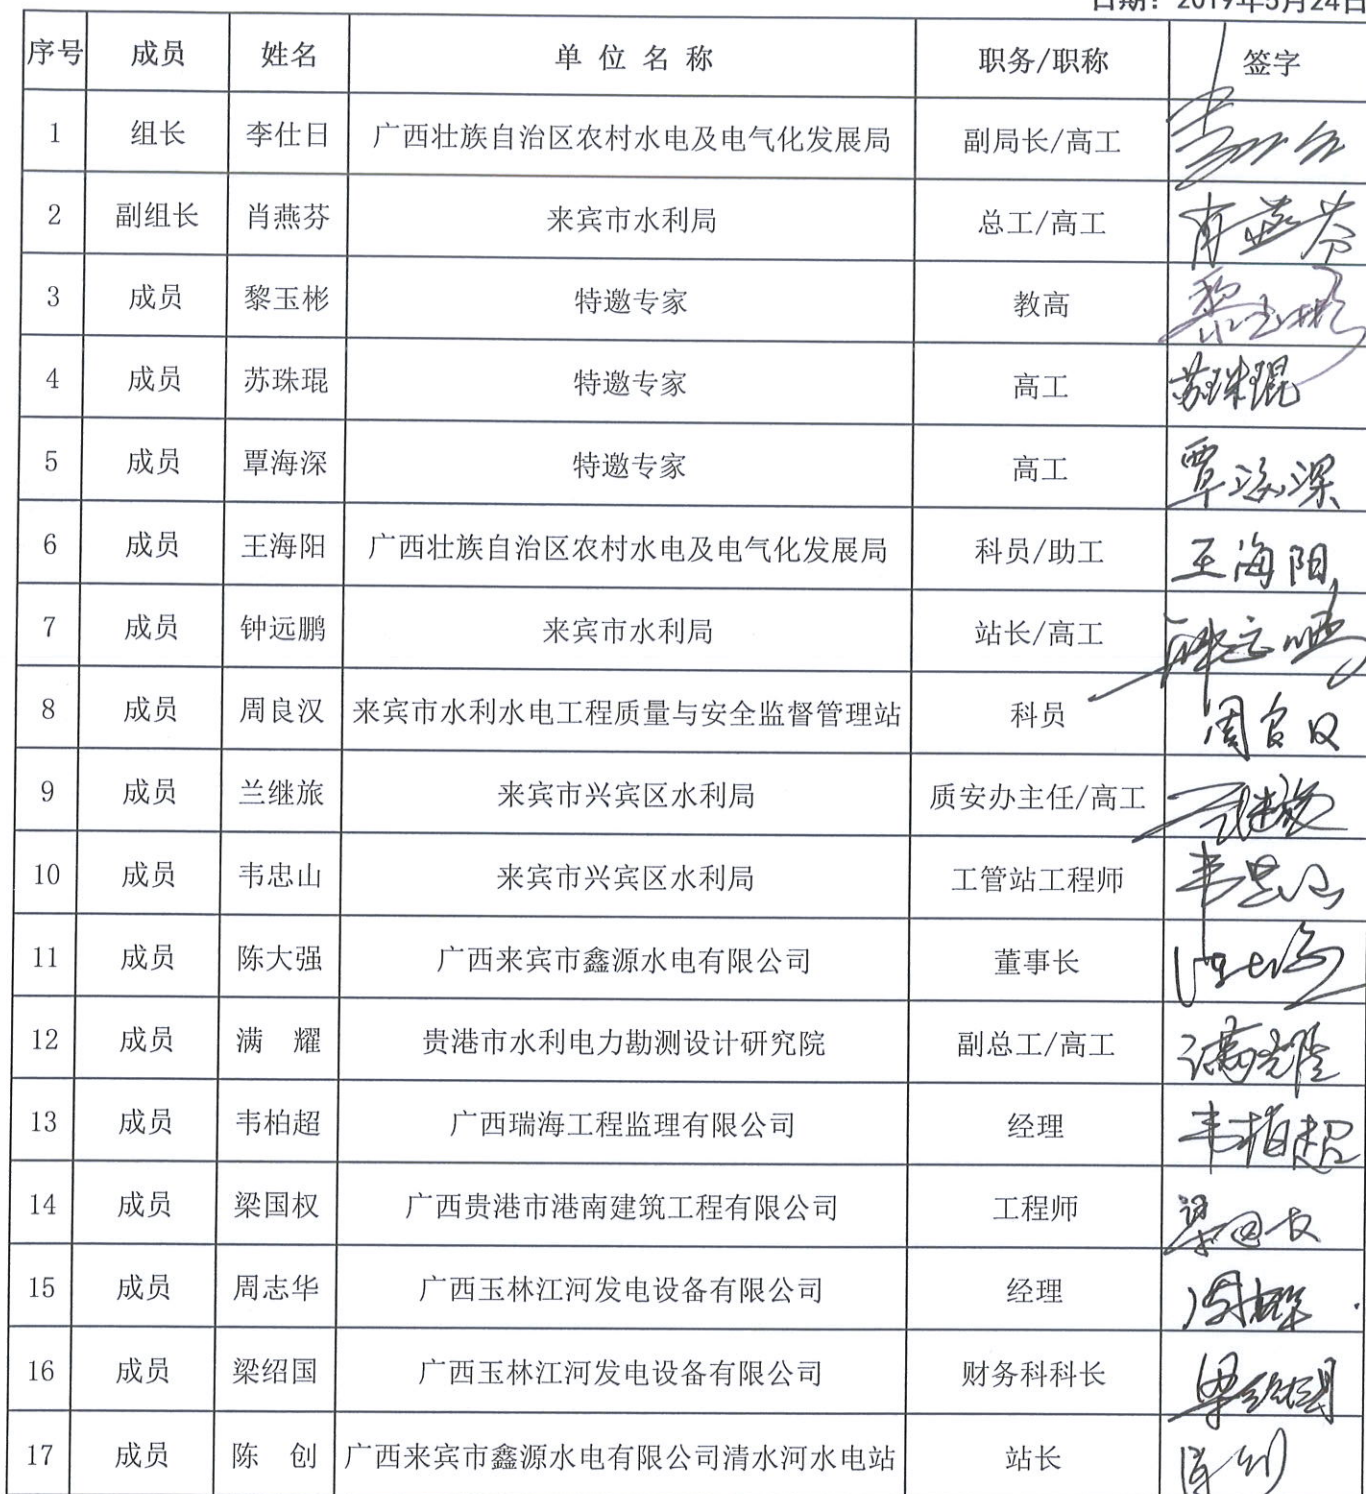 日期：2019年5月24日
序号 成员 姓名 单位名称 职务/职称 签字
1 组长 李仕日 广西壮族自治区农村水电及电气化发展局 副局长/高工
2 副组长 肖燕芬 来宾市水利局 总工/高工 肖燕芬
3 成员 黎玉彬 特邀专家 教高 黎玉彬
4 成员 苏珠琨 特邀专家 高工 苏珠琨
5 成员 覃海深 特邀专家 高工 覃海深
6 成员 王海阳 广西壮族自治区农村水电及电气化发展局 科员/助工 王海阳
7 成员 钟远鹏 来宾市水利局 站长/高工 钟远鹏
8 成员 周良汉 来宾市水利水电工程质量与安全监督管理站 科员 周良汉
9 成员 兰继旅 来宾市兴宾区水利局 质安办主任/高工
10 成员 韦忠山 来宾市兴宾区水利局 工管站工程师 韦忠山
11 成员 陈大强 广西来宾市鑫源水电有限公司 董事长
12 成员 满耀 贵港市水利电力勘测设计研究院 副总工/高工 满耀
13 成员 韦柏超 广西瑞海工程监理有限公司 经理 韦柏超
14 成员 梁国权 广西贵港市港南建筑工程有限公司 工程师 梁国权
15 成员 周志华 广西玉林江河发电设备有限公司 经理 周志华
16 成员 梁绍国 广西玉林江河发电设备有限公司 财务科科长 梁绍国
17 成员 陈创 广西来宾市鑫源水电有限公司清水河水电站 站长 陈创